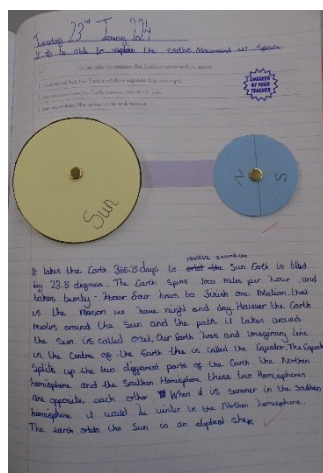 Tuesday 23rd January 2024
to be able to explain the earth's movement in space
I can understand the terms orbit and
MARKED BY YOUR TEACHER
Sun
N S
revolve around the
It takes the Earth 365.25 days to orbit the Sun. Earth is tilted
by 23.5 degrees. The Earth spins 1000 miles per hour and
takes twenty-four hours to finish one rotation. that
is the reason we have night and day. However the Earth
revolves around the Sun and the path it takes around
the Sun is called orbit. Our Earth has and imaginary line
in the centre of the Earth this is called the Equator. The Equator
splits up the two different parts of the Earth the Northern
hemisphere and the Southern Hemisphere these two Hemispheres
are opposite each other When it is summer in the Southern
hemisphere it would be winter in the Northern hemisphere.
The earth orbits the Sun in an eliptical shape